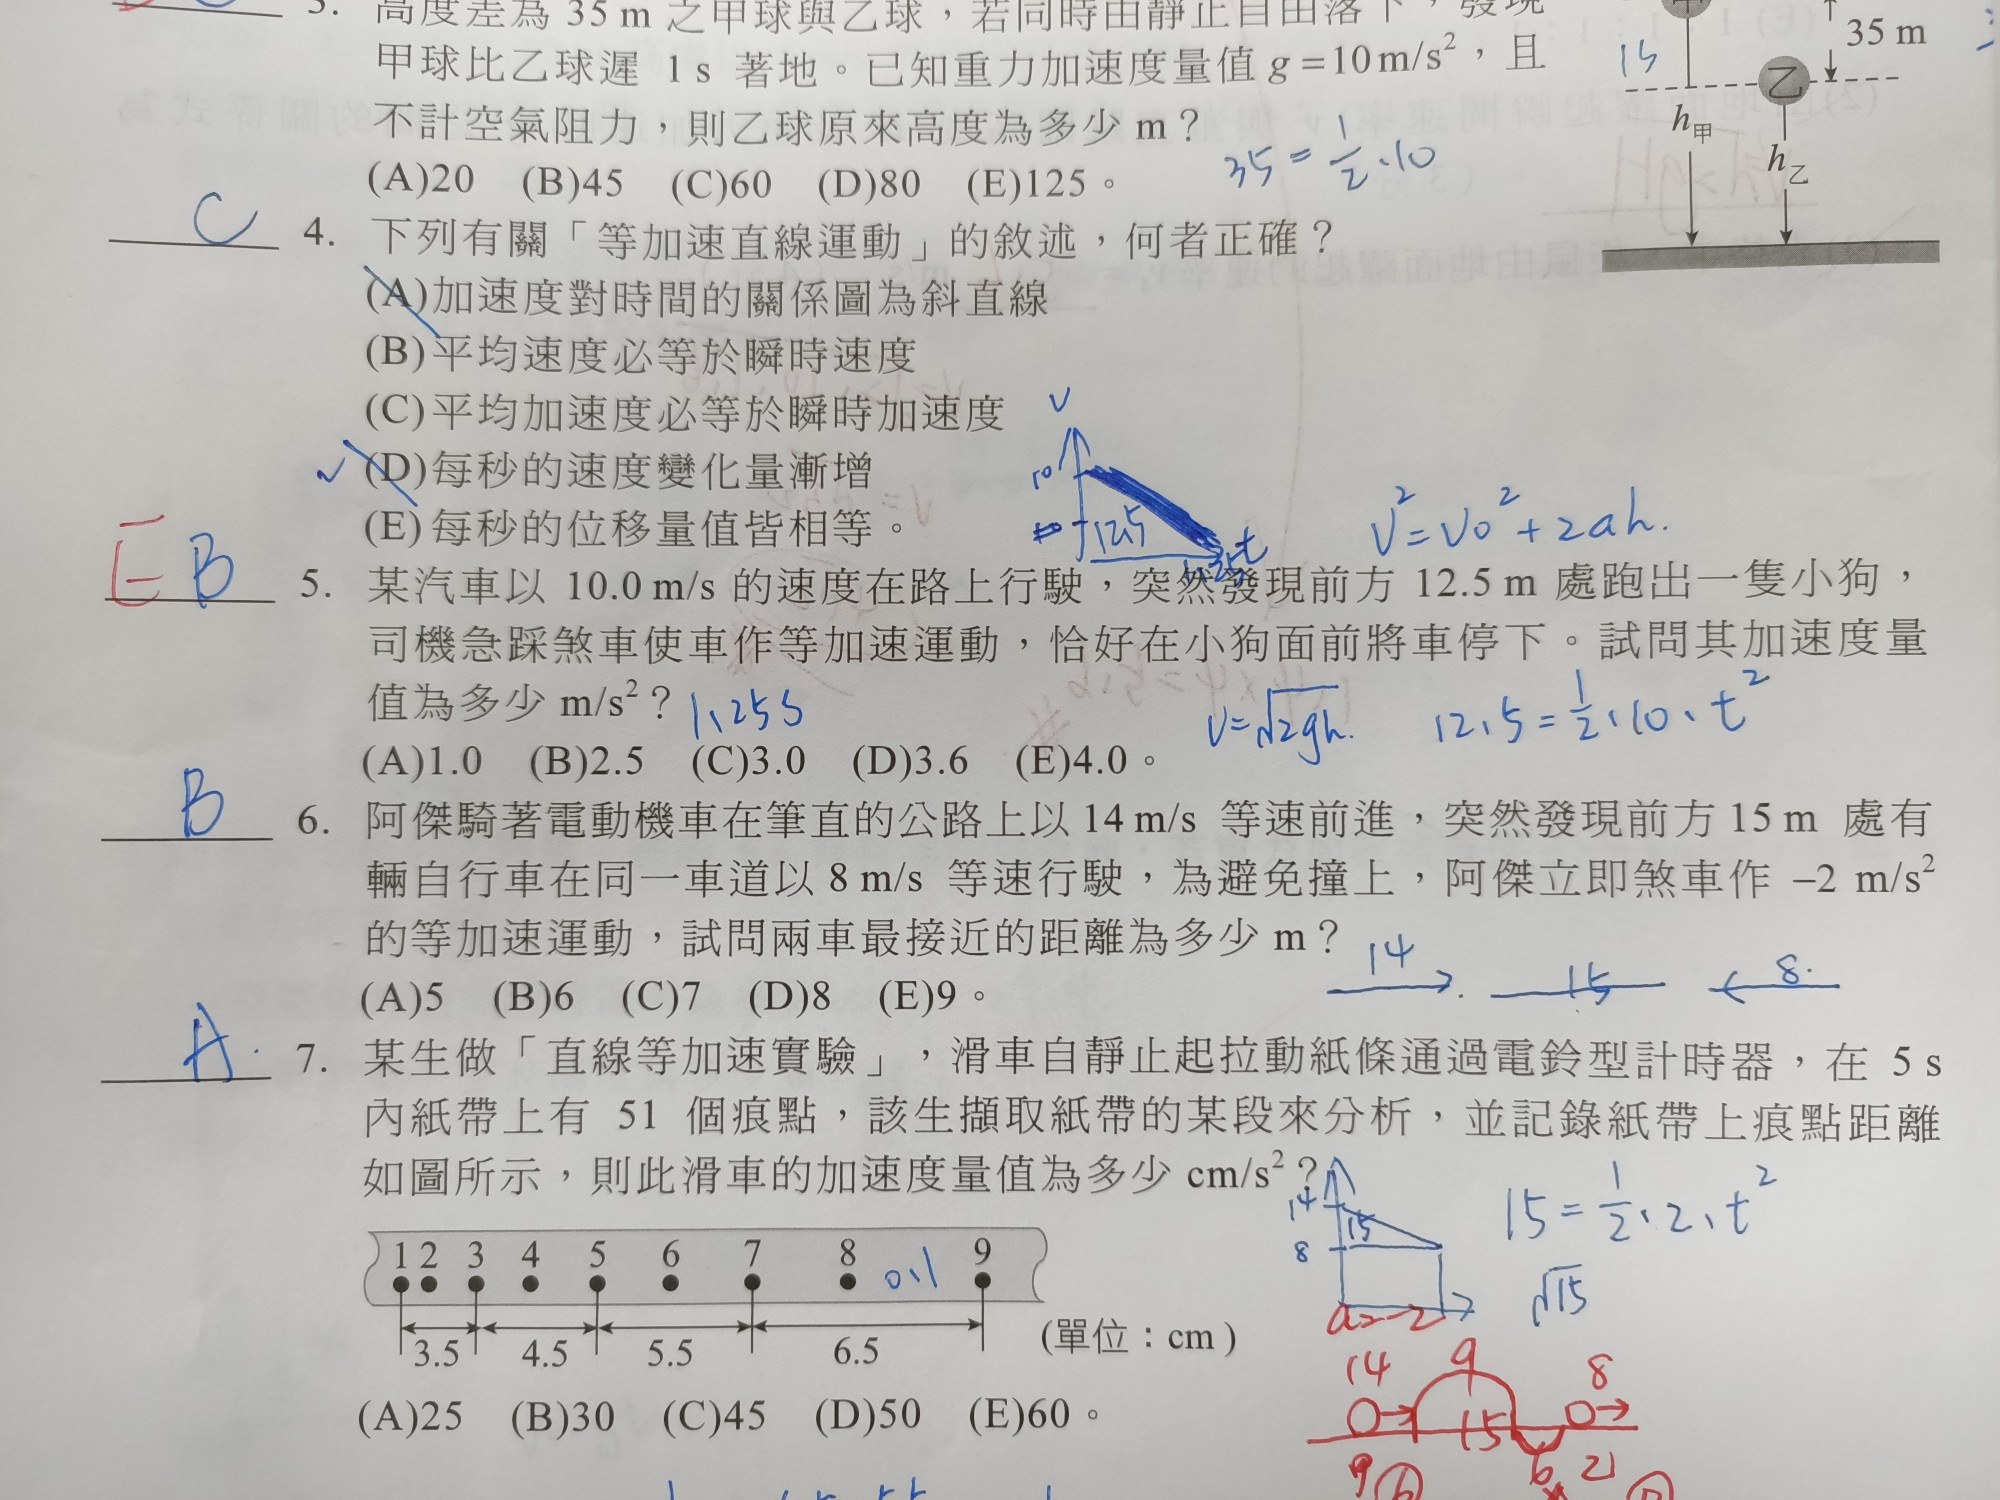 3. 高度差為 35 m 之甲球與乙球，若同時由靜止自由落下，發現
甲球比乙球遲 1 s 著地。已知重力加速度量值 g =10 m/s²，且
不計空氣阻力，則乙球原來高度為多少 m？
(A)20 (B)45 (C)60 (D)80 (E)125。
35 = 1/2 · 10
35 m
1s
乙
h甲
h乙
C 4. 下列有關「等加速直線運動」的敘述，何者正確？
(A)加速度對時間的關係圖為斜直線
(B)平均速度必等於瞬時速度
(C)平均加速度必等於瞬時加速度
(D)每秒的速度變化量漸增
(E)每秒的位移量值皆相等。
v
10
12.5
t
V² = V0² + 2ah.
E B 5. 某汽車以 10.0 m/s 的速度在路上行駛，突然發現前方 12.5 m 處跑出一隻小狗，
司機急踩煞車使車作等加速運動，恰好在小狗面前將車停下。試問其加速度量
值為多少 m/s²？
1.25 s
V=√2gh.
12.5 = 1/2 · 10 · t²
(A)1.0 (B)2.5 (C)3.0 (D)3.6 (E)4.0。
B 6. 阿傑騎著電動機車在筆直的公路上以 14 m/s 等速前進，突然發現前方 15 m 處有
輛自行車在同一車道以 8 m/s 等速行駛，為避免撞上，阿傑立即煞車作 –2 m/s²
的等加速運動，試問兩車最接近的距離為多少 m？
14 15 8
(A)5 (B)6 (C)7 (D)8 (E)9。
A 7. 某生做「直線等加速實驗」，滑車自靜止起拉動紙條通過電鈴型計時器，在 5 s
內紙帶上有 51 個痕點，該生擷取紙帶的某段來分析，並記錄紙帶上痕點距離
如圖所示，則此滑車的加速度量值為多少 cm/s²？
14
15
8
15 = 1/2 · 2 · t²
√15
1 2 3 4 5 6 7 8 0.1 9
3.5 4.5 5.5 6.5
(單位：cm)
(A)25 (B)30 (C)45 (D)50 (E)60。
a=-2
14 9 8
15
9 6 6 21